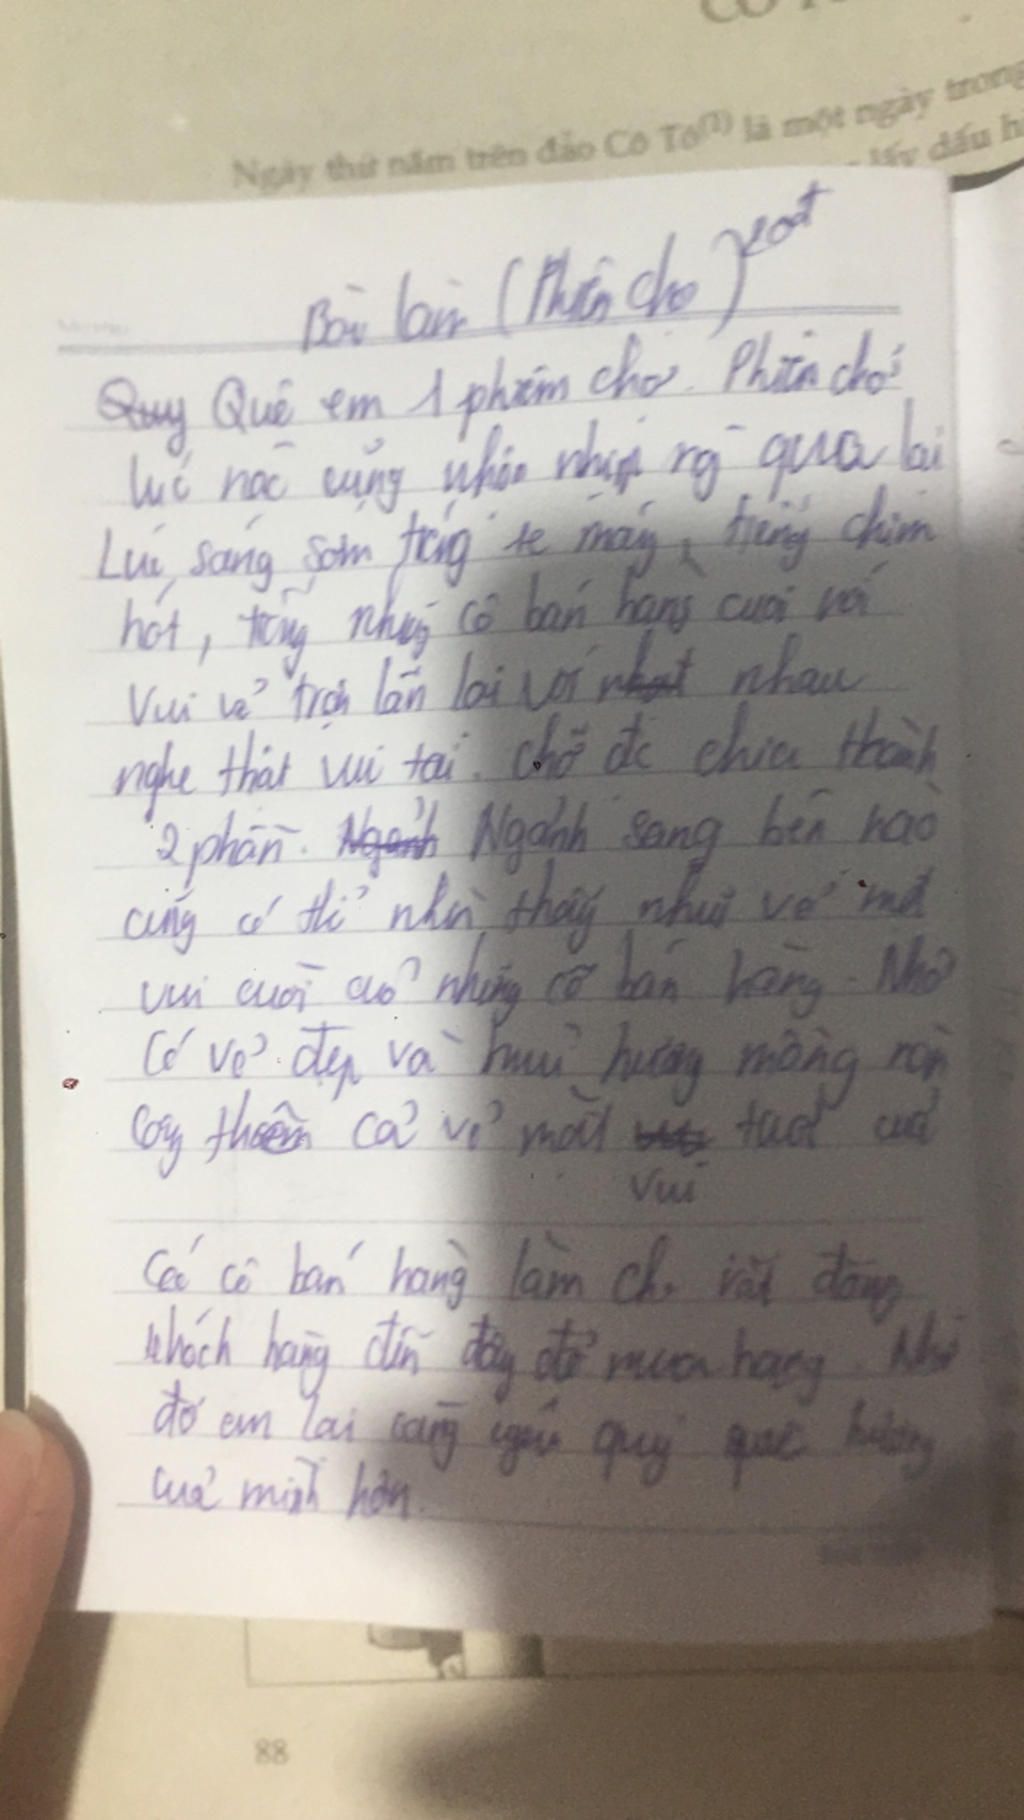 Ngày thứ năm trên đảo Cô Tô(1) là một ngày trong
lấy dấu h
Bài làm (Phiên chợ)
Quy Quê em 1 phiêm chợ. Phiên chợ
lúc nào cũng nhộn nhịp qua lại
Lúc sáng sớm tiếng xe máy, tiếng chim
hót, tiếng những cô bán hàng cười nói
vui vẻ trộn lẫn lại với nhau
nghe thật vui tai. Chỗ đc chia thành
2 phần. Ngảnh Ngảnh sang bên nào
cũng có thể nhìn thấy những vẻ mặt
vui cười của những cô bán hàng. Nhờ
Có vẻ đẹp và mùi hương nồng nàn
thêm cả vẻ mặt vui tươi của
Các cô bán hàng làm cho rất đông
khách hàng đến đây để mua hàng. Nhờ
đó em lại càng yêu quý quê hương
của mình hơn.
88